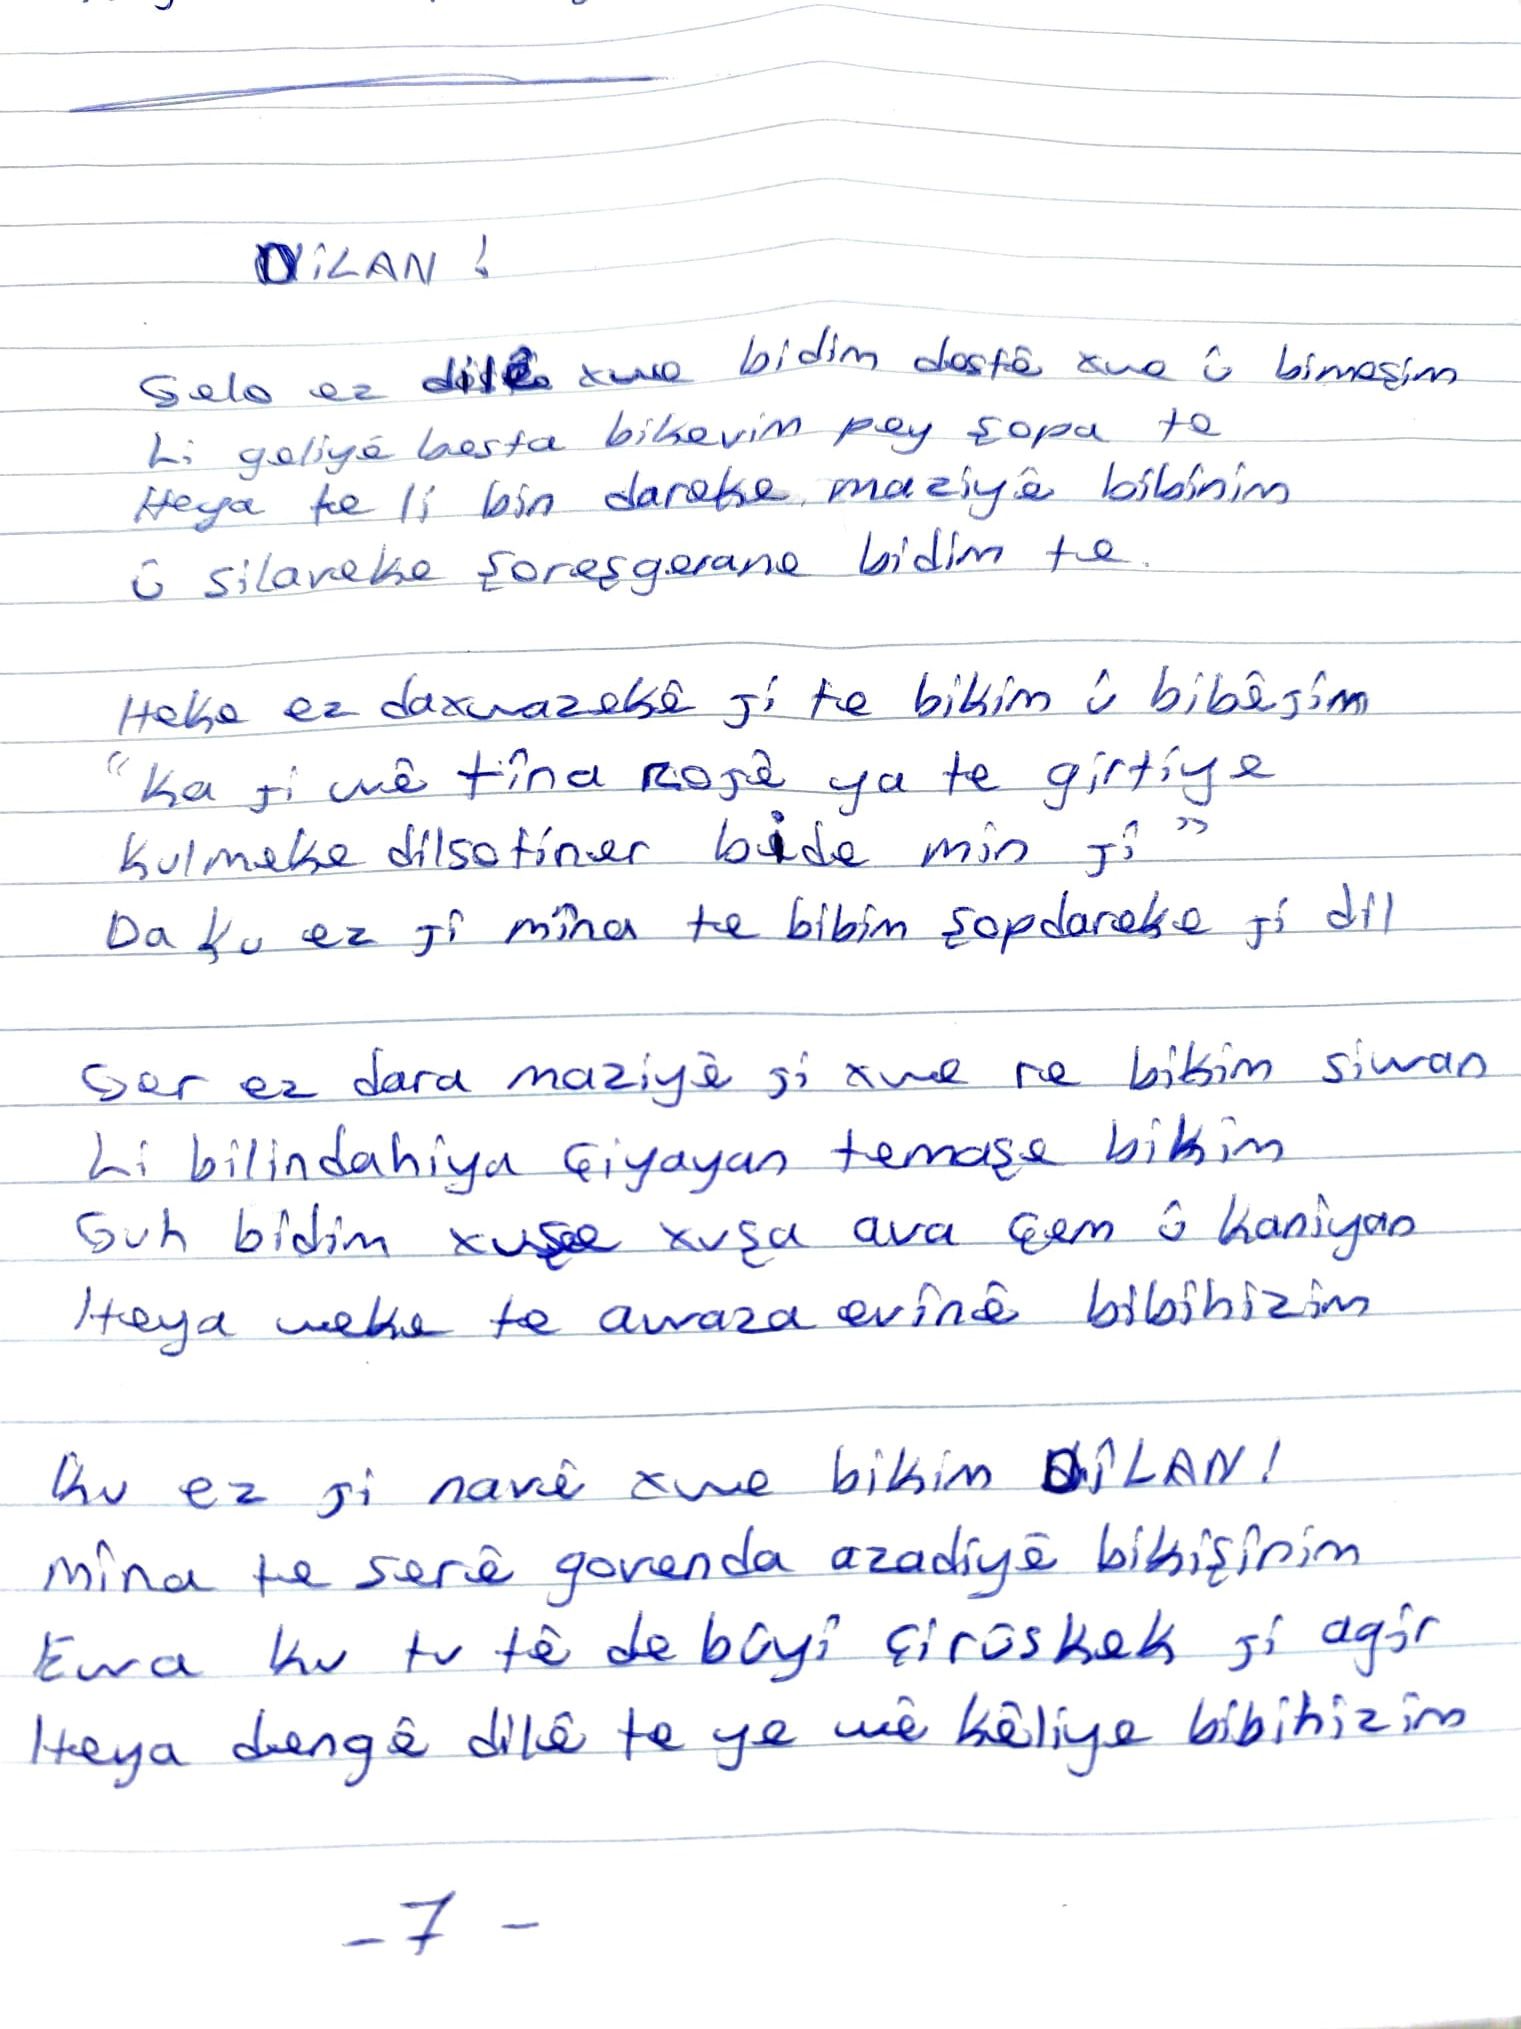 DÎLAN !
Gelo ez dilê xwe bidim destê xwe û bimeşim
Li geliyê besta bikevim pey şopa te
Heya te li bin dareke maziyê bibînim
û silaveke şoreşgerane bidim te.
Heke ez daxwazekê ji te bikim û bibêjim
"Ka ji wê tîna rojê ya te girtiye
Kulmeke dilsotîner bide min jî"
Da ku ez jî mîna te bibim şopdareke ji dil
Ger ez dara maziyê ji xwe re bikim siwan
Li bilindahiya çiyayan temaşe bikim
Guh bidim xuşe xuşa ava çem û kaniyan
Heya weke te awaza evînê bibihizim
Ku ez ji navê xwe bikim DÎLAN!
Mîna te serê govenda azadiyê bikişînim
Ewa ku tu tê de bûyî çirûskek ji agir
Heya dengê dilê te ye wê kêliye bibihizim
- 7 -